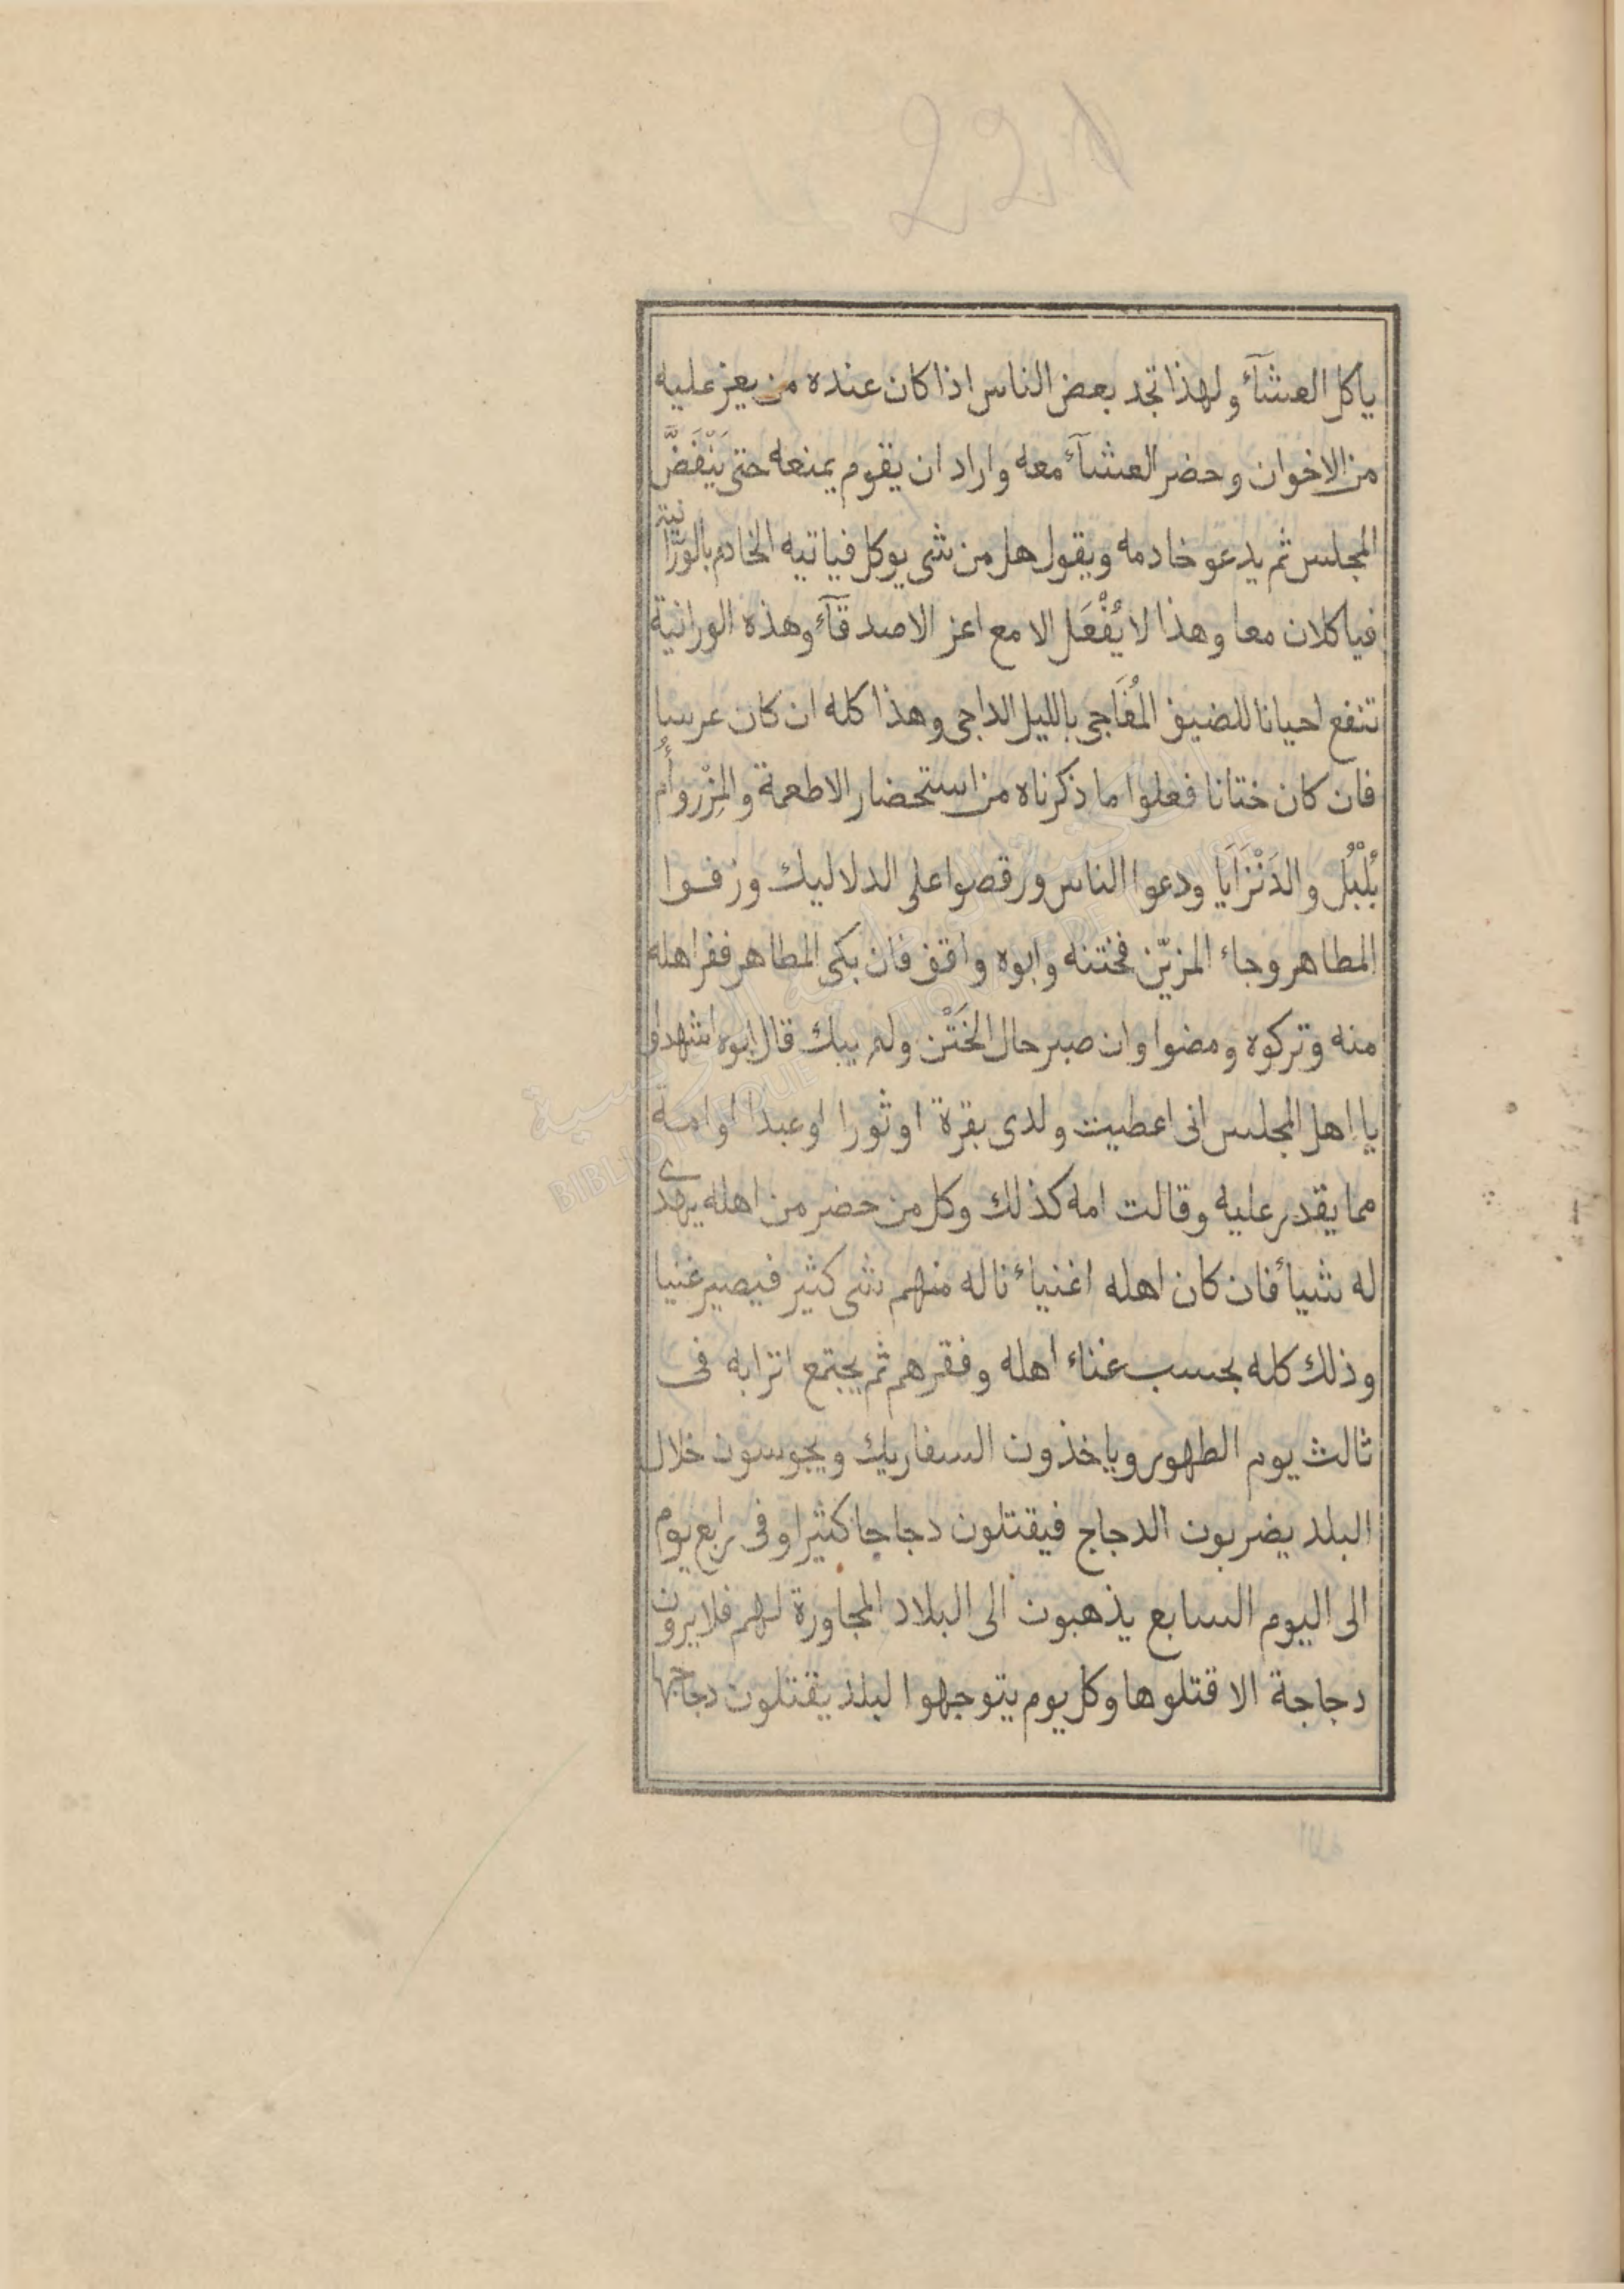 221
ياكل العشآء ولهذا تجد بعض الناس اذا كان عنده من يعز عليه
من الاخوان وحضر العشآء معه واراد ان يقوم يمنعه حتى يَنْفَضَّ
المجلس ثم يدعو خادمه ويقول هل من شى يوكل فياتيه الخادم بالورّانية
فياكلان معا وهذا لا يُفْعَل الا مع اعز الاصدقآء وهذه الورانية
تنفع احيانا للضيف المُفَاجى بالليل الداجى وهذا كله ان كان عرسا
فان كان ختانا فعلوا ما ذكرناه من استحضار الاطعمة والمِزْر وأُم
بُلْبُل والدَنْزَايَا ودعوا الناس ورقصوا على الدلاليك وزفوا
المطاهر وجاء المزيّن فختنه وابوه واقف فان بكى المطاهر ففر اهله
منه وتركوه ومضوا وان صبر حال الخَتْن ولم يبك قال ابوه اشهدوا
يا اهل المجلس انى اعطيت ولدى بقرة اوثورا اوعبدا اوامة
مما يقدر عليه وقالت امه كذلك وكل من حضر من اهله يهدى
له شيأ فان كان اهله اغنياء ناله منهم شى كثير فيصير غنيا
وذلك كله بحسب غناء اهله وفقرهم ثم يجتمع اترابه فى
ثالث يوم الطهور وياخذون السفاريك ويجوسون خلال
البلد يضربون الدجاج فيقتلون دجاجا كثيرا وفى رابع يوم
الى اليوم السابع يذهبون الى البلاد المجاورة لهم فلايرون
دجاجة الا قتلوها وكل يوم يتوجهوا لبلد يقتلون دجاجها
المكتبة الوطنية التونسية
BIBLIOTHEQUE NATIONALE DE TUNISIE